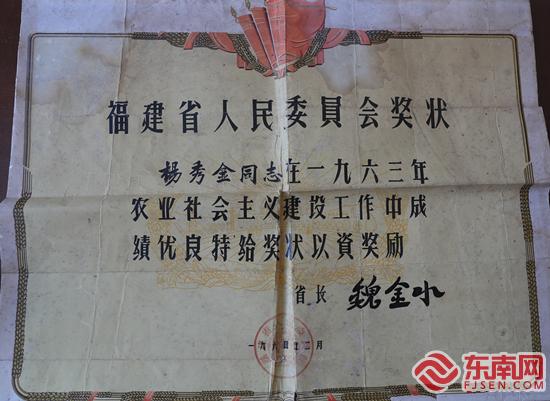 福建省人民委員会奖状
杨秀金同志在一九六三年
农业社会主义建设工作中成
绩优良特给奖状以資奖励
省长 魏金水
一九六四年二月
东南网
FJSEN.COM